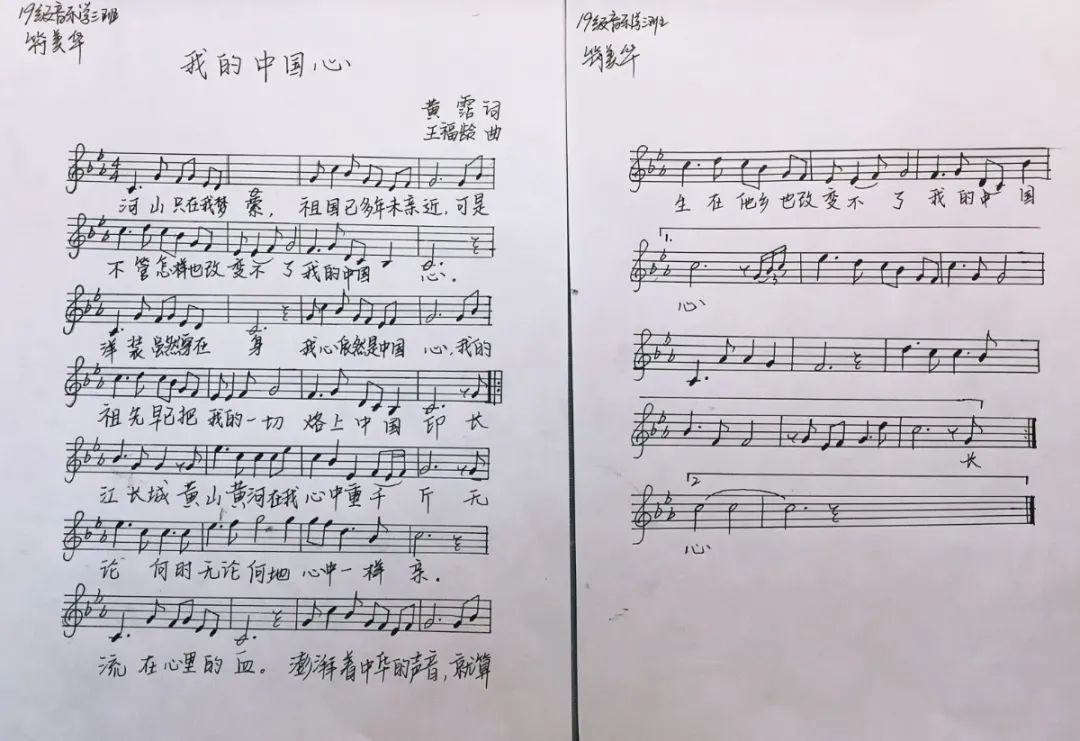 19级音乐学三班
符美华
我的中国心
黄霑 词
王福龄 曲
河山只在我梦萦,祖国已多年未亲近,可是
不管怎样也改变不了我的中国心.
洋装虽然穿在身 我心依然是中国心,我的
祖先早已把我的一切 烙上中国印 长
江长城 黄山黄河在我心中重千斤 无
论何时无论何地 心中一样亲.
流在心里的血。澎湃着中华的声音,就算
19级音乐学三班
符美华
生在他乡也改变不了我的中国
1.
心
3
长
2
心